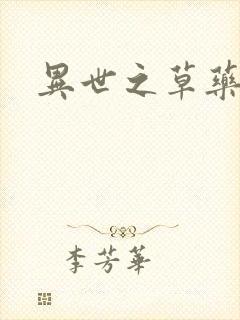 異世之草藥
李芳華